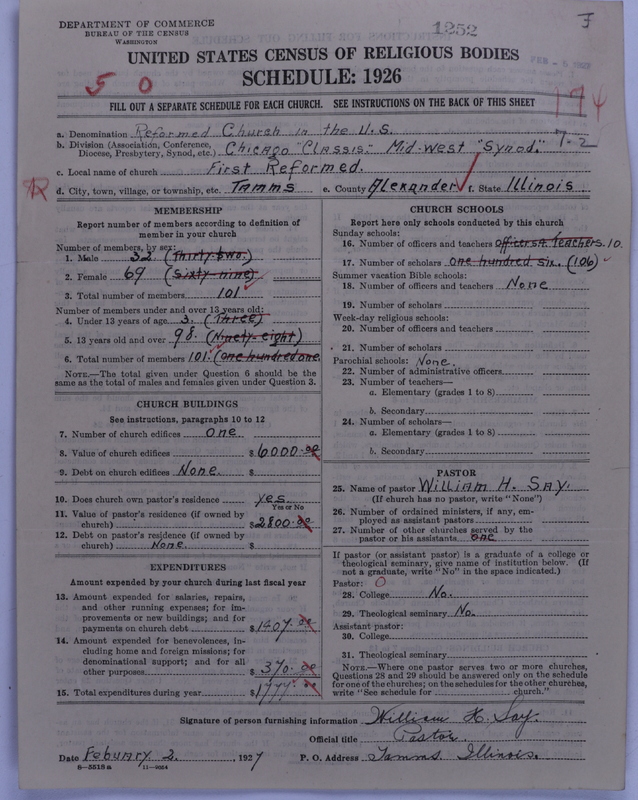 DEPARTMENT OF COMMERCE
BUREAU OF THE CENSUS
WASHINGTON
1252
UNITED STATES CENSUS OF RELIGIOUS BODIES
SCHEDULE: 1926
5 0
174
FILL OUT A SEPARATE SCHEDULE FOR EACH CHURCH. SEE INSTRUCTIONS ON THE BACK OF THIS SHEET
a. Denomination Reformed Church in the U.S.
b. Division (Association, Conference, Diocese, Presbytery, Synod, etc.) Chicago "Classis." Mid-West "Synod." 7-2
c. Local name of church First Reformed.
d. City, town, village, or township, etc. Tamms e. County Alexander f. State Illinois
MEMBERSHIP
Report number of members according to definition of
member in your church
Number of members, by sex:
1. Male 32 (Thirty two.)
2. Female 69 (Sixty-nine)
3. Total number of members 101
Number of members under and over 13 years old:
4. Under 13 years of age 3. (Three)
5. 13 years old and over 98. (Ninety-eight)
6. Total number of members 101. (One hundred one.
NOTE.—The total given under Question 6 should be the
same as the total of males and females given under Question 3.
CHURCH BUILDINGS
See instructions, paragraphs 10 to 12
7. Number of church edifices one
8. Value of church edifices $6000.00
9. Debt on church edifices None. $
10. Does church own pastor's residence yes
Yes or No
11. Value of pastor's residence (if owned by
church) $2800.00
12. Debt on pastor's residence (if owned by
church) None. $
EXPENDITURES
Amount expended by your church during last fiscal year
13. Amount expended for salaries, repairs,
and other running expenses; for im-
provements or new buildings; and for
payments on church debt $1407.00
14. Amount expended for benevolences, in-
cluding home and foreign missions; for
denominational support; and for all
other purposes $370.00
15. Total expenditures during year $1777.00
CHURCH SCHOOLS
Report here only schools conducted by this church
Sunday schools:
16. Number of officers and teachers officers & Teachers. 10.
17. Number of scholars one hundred six. (106)
Summer vacation Bible schools:
18. Number of officers and teachers None
19. Number of scholars
Week-day religious schools:
20. Number of officers and teachers
21. Number of scholars
Parochial schools: None.
22. Number of administrative officers
23. Number of teachers—
a. Elementary (grades 1 to 8)
b. Secondary
24. Number of scholars—
a. Elementary (grades 1 to 8)
b. Secondary
PASTOR
25. Name of pastor William H. Say.
(If church has no pastor, write "None")
26. Number of ordained ministers, if any, em-
ployed as assistant pastors
27. Number of other churches served by the
pastor or his assistants one
If pastor (or assistant pastor) is a graduate of a college or
theological seminary, give name of institution below. (If
not a graduate, write "No" in the space indicated.)
Pastor: 0
28. College No.
29. Theological seminary No.
Assistant pastor:
30. College
31. Theological seminary
NOTE.—Where one pastor serves two or more churches,
Questions 28 and 29 should be answered only on the schedule
for one of the churches; on the schedules for the other churches,
write "See schedule for church."
Signature of person furnishing information William H. Say.
Official title Pastor.
Date Febuary 2, 1927 P. O. Address Tamms Illinois.
8-5518a 11-9024